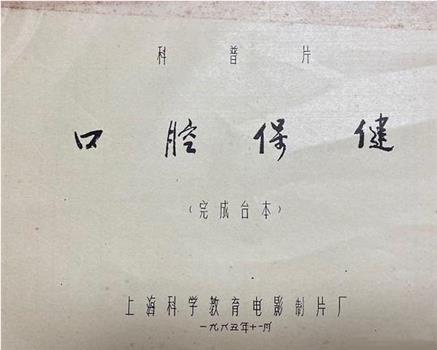 科普片
口腔保健
(完成台本)
上海科学教育电影制片厂
一九八五年十一月